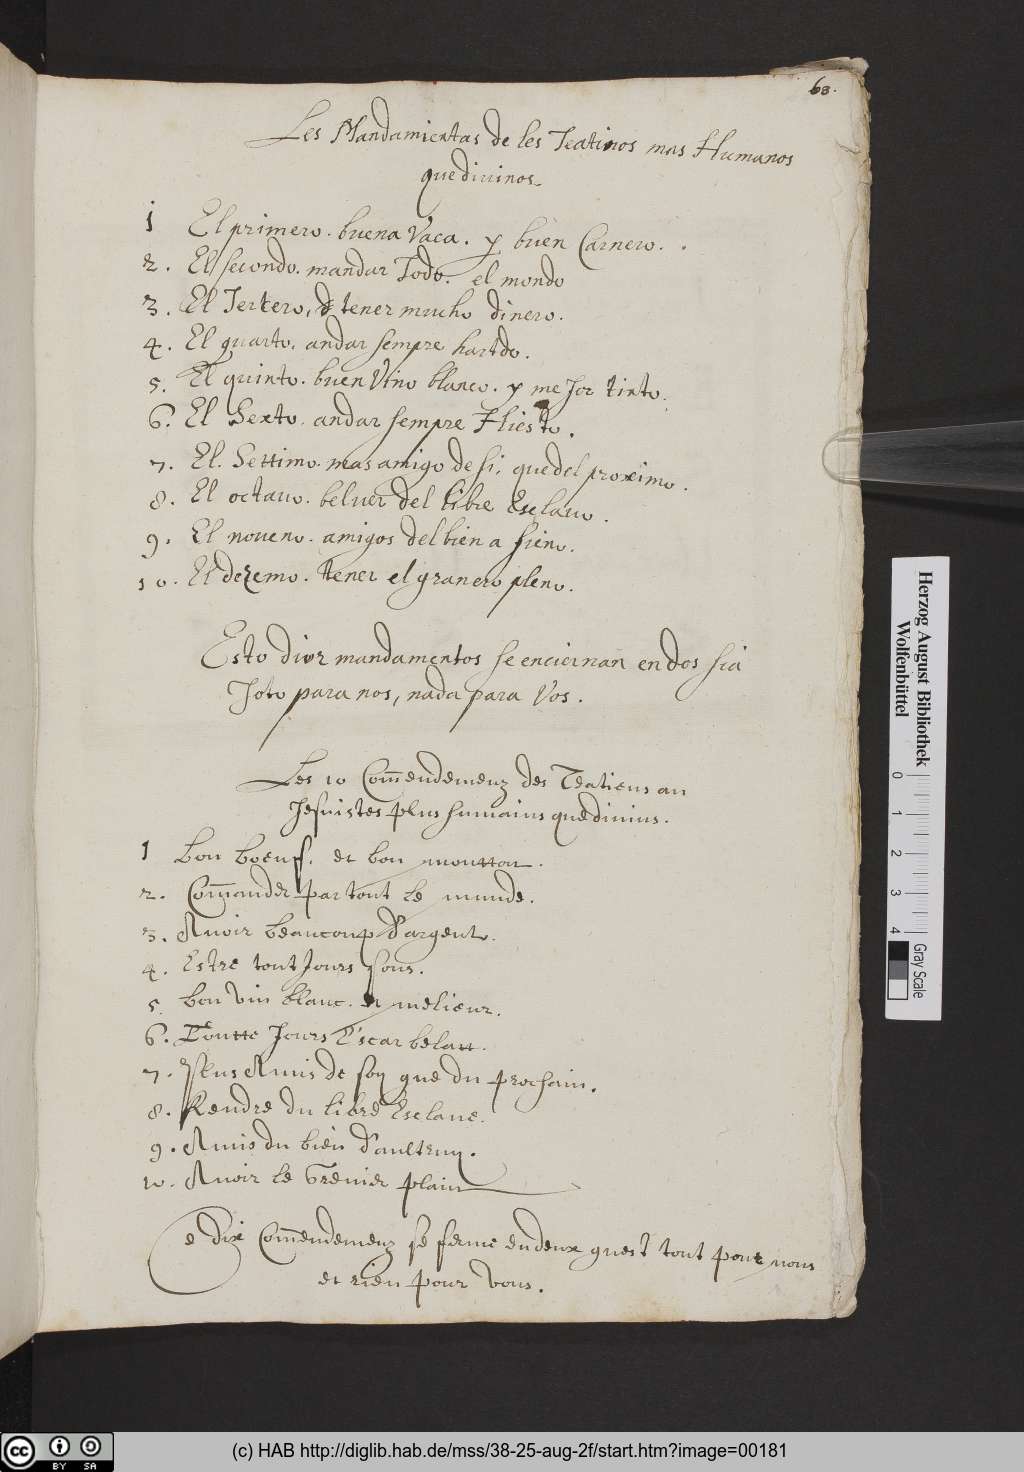 68.
Les Mandamientas de les Teatinos mas Humanos
que divinos.
1 El primero. buena Vaca. y buen Carnero.
2. El secondo. mandar Todo. el mondo
3. El Tercero, de tener mucho dinero.
4. El quarto. andar sempre hartdo.
5. El quinto. buen Vino blanco. y me Jor tinto.
6. El Sexto. andar sempre Hiesto.
7. El. Settimo. mas amigo de si, que del proximo.
8. El octavo. belver del libre Esclavo.
9. El noveno. amigos del bien a hieno.
10. El dezemo. tener el granero pleno.
Esto diez mandamentos se enciernan en dos sia
Toto para nos, nada para Vos.
Les 10 Com̄endemenz des Teatiens au
Jesuistes plus humains que divins.
1 bon boeuf. et bon moutton.
2. Com̄ander par tout le munde.
3. Avoir beaucoup d'argent.
4. Estre toutJours sour.
5. bon vin blanc. et melieur.
6. Toutte Jours Escarbelatt.
7. Plus Amis de soy que du prochain.
8. Rendre du libre Esclave.
9. Amis du bien d'aultruy.
10. Avoir le Grenier plain
Ce dix Com̄endemenz se ferme en deux quest tout pour nous
et rien pour vous.
Herzog August Bibliothek
Wolfenbüttel
0 1 2 3 4
Gray Scale
cc BY SA
(c) HAB http://diglib.hab.de/mss/38-25-aug-2f/start.htm?image=00181